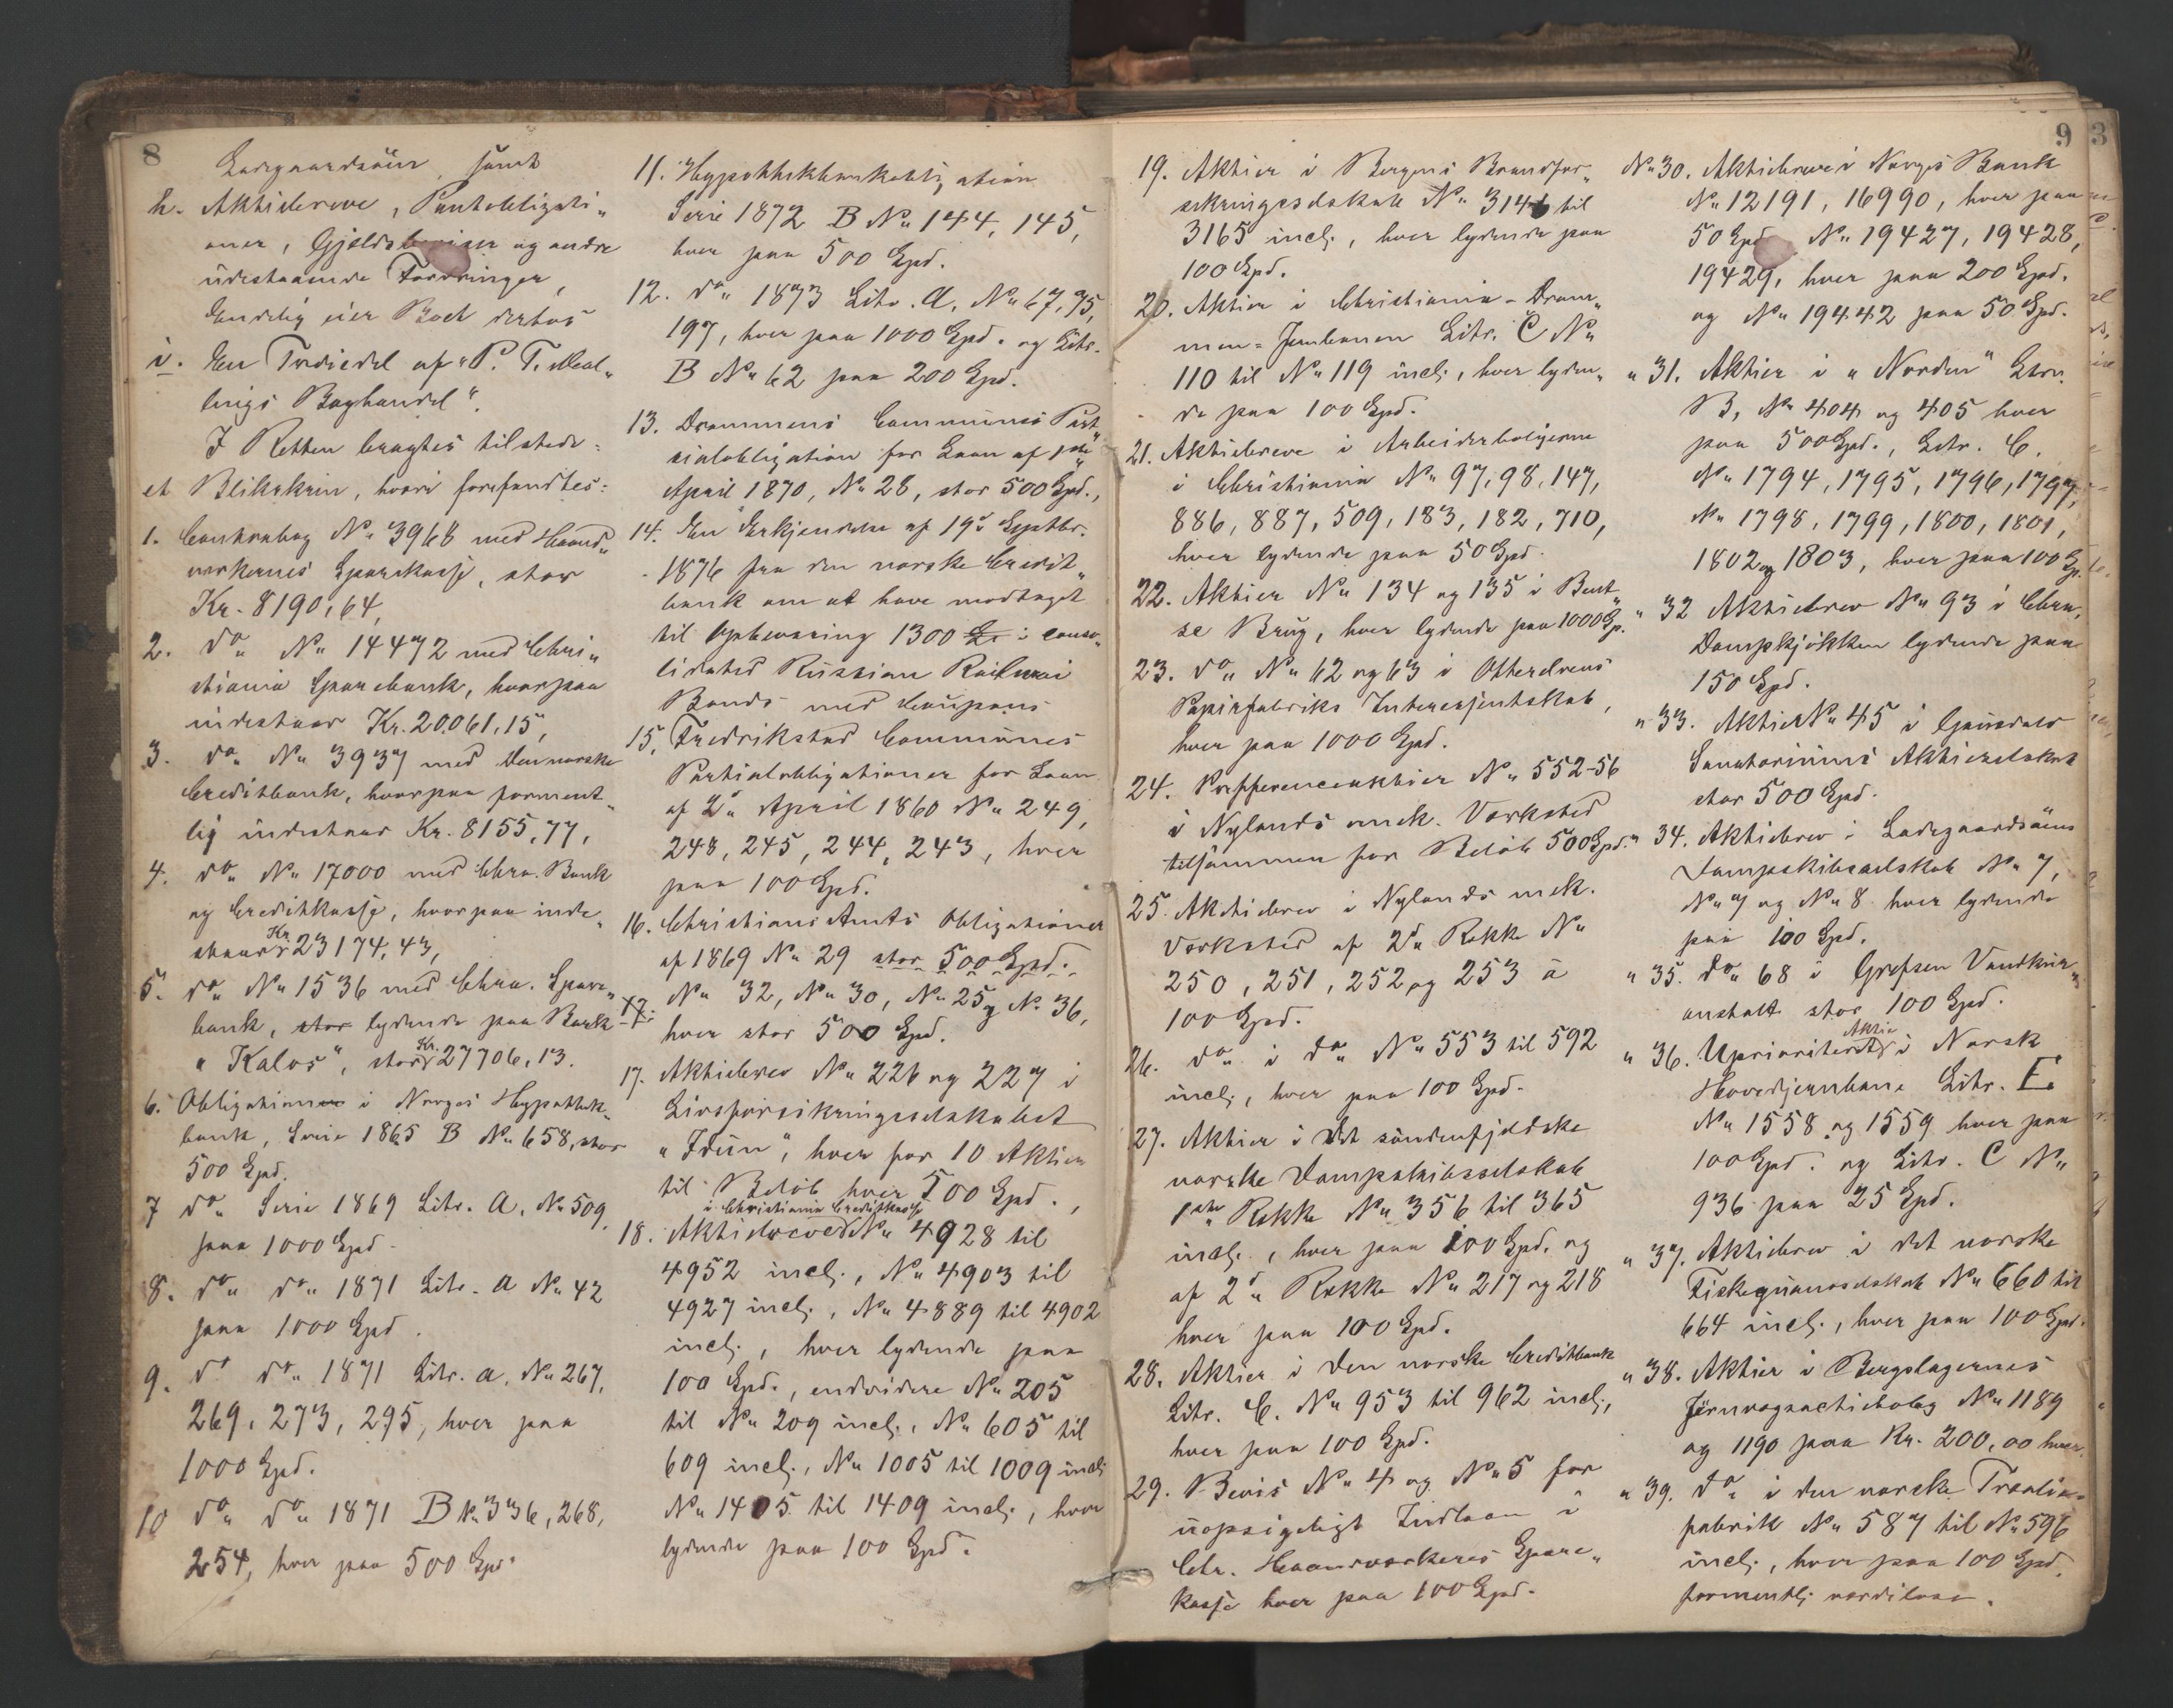 8
Ladegaardsöen, samt
h. Aktiebreve, Pantobligati„
oner, Gjeldsbeviser og andre
udestaaende Fordringer,
Endelig eier Boet derhos
i. En Trediedel af "P. T. Mal„
lings Boghandel".
I Retten bragtes tilstede:
et Blikskrin, hvori forefandtes:
1. Contrabog No 3968 med Haand„
verkernes Sparekasse, stor
Kr. 8190,64,
2. do No 14472 med Chri„
stiania Sparebank, hvorpaa
indestaar Kr. 20.061,15,
3. do No 3937 med Den norske
Creditbank, hvorpaa forment„
lig indestaar Kr. 8155,77,
4. do No 17000 med Chra. Bank
og Creditkasse, hvorpaa inde„
staar Kr 23174,43,
5. do No 1536 med Chra. Spare„
bank, stor lydende paa Bark
"Kalos", stor Kr. 27706,13.
6. Obligationer i Norges Hypothek„
bank, Serie 1865 B No 658, stor
500 Spd.
7 do Serie 1869 Litr. A. No 509,
paa 1000 Spd.
8. do do 1871 Litr. A No 42
paa 1000 Spd.
9. do do 1871 Litr. A. No 267,
269, 273, 295, hver paa
1000 Spd.
10 do do 1871 B No 336, 268,
254, hver paa 500 Spd.
11. Hypothekbankobligation
Serie 1872 B No 144, 145,
hver paa 500 Spd.
12. do 1873 Litr. A. No 67, 75,
197, hver paa 1000 Spd. og Litr.
B No 62 paa 200 Spd.
13. Drammens Communes Part„
sialobligation for Laan af 1ste
April 1870, No 28, stor 500 Spd.,
14. En Erkjendelse af 19de Septbr.
1876 fra den norske Credit„
bank om at have modtaget
til Opbevaring 1300 £ i conso„
lidated Russian Railwai
Bonds med Coupons
15, Fredrikstad Communes
Partialobligationer for Laan
af 2den April 1860 No 249,
248, 245, 244, 243, hver
paa 100 Spd.
16. Christians Amts Obligationer
af 1869 No 29 stor 500 Spd.
17. No 32, No 30, No 25 og No 36,
hver stor 500 Spd.
17. Aktiebrev No 226 og 227 i
Livsforsikringsselskabet
"Idun", hver for 10 Aktier
til Beløb hver 500 Spd.,
i Christiania Creditkasse
18. Aktiebreve No 4928 til
4952 incl., No 4903 til
4927 incl., No 4889 til 4902
incl., hver lydende paa
100 Spd., endvidere No 205
til No 209 incl., No 605 til
609 incl., No 1005 til 1009 incl.
No 1405 til 1409 incl., hver
lydende paa 100 Spd.
9
19. Aktier i Bergens Brandfor„
sikringsselskab No 3141 til
3165 incl., hver lydende paa
100 Spd.
20. Aktier i Christiania-Dram„
men-Jernbanen Litr. C No
110 til No 119 incl., hver lyden„
de paa 100 Spd.
21. Aktiebreve i Arbeiderboligerne
i Christiania No 97, 98, 147,
886, 887, 509, 183, 182, 710,
hver lydende paa 50 Spd.
22. Aktier No 134 og 135 i Bent„
se Brug, hver lydende paa 1000 Sp.
23. do No 62 og 63 i Otterelvens
Papirfabriks Interessentskab,
hver paa 1000 Spd.
24. Prefferenceaktier No 552-56
i Nylands mek. Værksted
tilsammen for Beløb 500 Spd.
25. Aktiebrev i Nylands mek.
Værksted af 2den Række No
250, 251, 252 og 253 à
100 Spd.
26. do i do No 553 til 592
incl., hver paa 100 Spd.
27. Aktier i Det söndenfjeldske
norske Dampskibsselskab
1ste Række No 356 til 365
incl., hver paa 100 Spd. og
af 2den Række No 217 og 218
hver paa 100 Spd.
28. Aktier i Den norske Creditbank
Litr. C. No 953 til 962 incl.,
hver paa 100 Spd.
29. Bevis No 4 og No 5 for
uopsigeligt Indlaan i
Chr. Haandværkeres Spare„
kasse hver paa 100 Spd.
No 30. Aktiebreve i Norges Bank
No 12191, 16990, hver paa
50 Spd. No 19427, 19428,
19429, hver paa 200 Spd.
og No 19442 paa 50 Spd.
" 31. Aktier i "Norden" Litr.
B, No 404 og 405 hver
paa 500 Spd., Litr. C.
No 1794, 1795, 1796, 1797,
No 1798, 1799, 1800, 1801,
1802 og 1803, hver paa 100 Sp.
" 32 Aktiebrev No 93 i Chra.
Dampkjökken lydende paa
150 Spd.
" 33. Aktie No 45 i Gausdals
Sanatoriums Aktieselskab
stor 500 Spd.
" 34. Aktiebrev i Ladegaardsöens
Dampskibsselskab No 7,
No 7 og No 8 hver lydende
paa 100 Spd.
" 35. do 68 i Grefsen Vandkur„
anstalt stor 100 Spd.
" 36. Uprioriteret Aktie i Norsk
Hovedjernbane Litr. E.
No 1558 og 1559 hver paa
100 Spd. og Litr. C No
936 paa 25 Spd.
" 37. Aktiebrev i det norske
Fiskeguanoselskab No 660 til
664 incl., hver paa 100 Spd.
" 38. Aktier i Bergslagernes
Jernvagsactiebolag No 1189
og 1190 paa Kr. 200,00 hver.
" 39. do i den norske Træolie„
fabrik No 587 til No 596
incl., hver paa 100 Spd.
formentlig værdiløse.